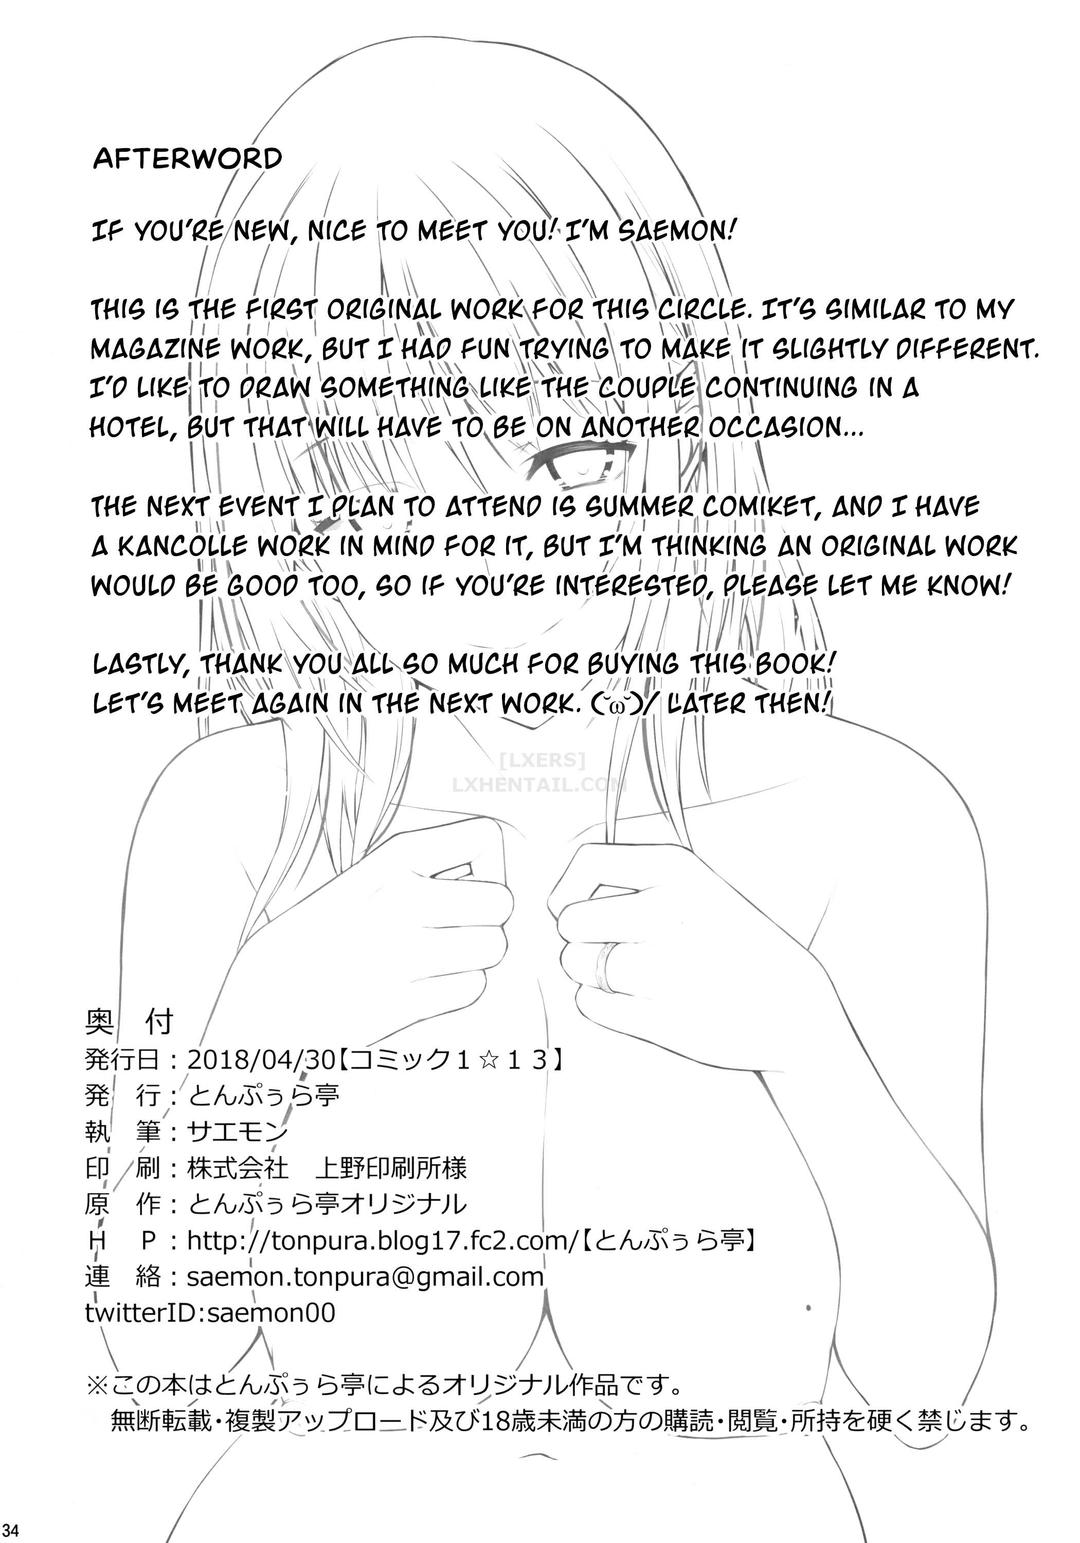 AFTERWORD
IF YOU'RE NEW, NICE TO MEET YOU! I'M SAEMON!
THIS IS THE FIRST ORIGINAL WORK FOR THIS CIRCLE. IT'S SIMILAR TO MY
MAGAZINE WORK, BUT I HAD FUN TRYING TO MAKE IT SLIGHTLY DIFFERENT.
I'D LIKE TO DRAW SOMETHING LIKE THE COUPLE CONTINUING IN A
HOTEL, BUT THAT WILL HAVE TO BE ON ANOTHER OCCASION...
THE NEXT EVENT I PLAN TO ATTEND IS SUMMER COMIKET, AND I HAVE
A KANCOLLE WORK IN MIND FOR IT, BUT I'M THINKING AN ORIGINAL WORK
WOULD BE GOOD TOO, SO IF YOU'RE INTERESTED, PLEASE LET ME KNOW!
LASTLY, THANK YOU ALL SO MUCH FOR BUYING THIS BOOK!
LET'S MEET AGAIN IN THE NEXT WORK. (˘ω˘)/ LATER THEN!
[LXERS]
LXHENTAIL.COM
奥　付
発行日：2018/04/30【コミック１☆１３】
発　行：とんぷぅら亭
執　筆：サエモン
印　刷：株式会社　上野印刷所様
原　作：とんぷぅら亭オリジナル
Ｈ　Ｐ：http://tonpura.blog17.fc2.com/【とんぷぅら亭】
連　絡：saemon.tonpura@gmail.com
twitterID:saemon00
※この本はとんぷぅら亭によるオリジナル作品です。
無断転載・複製アップロード及び18歳未満の方の購読・閲覧・所持を硬く禁じます。
34